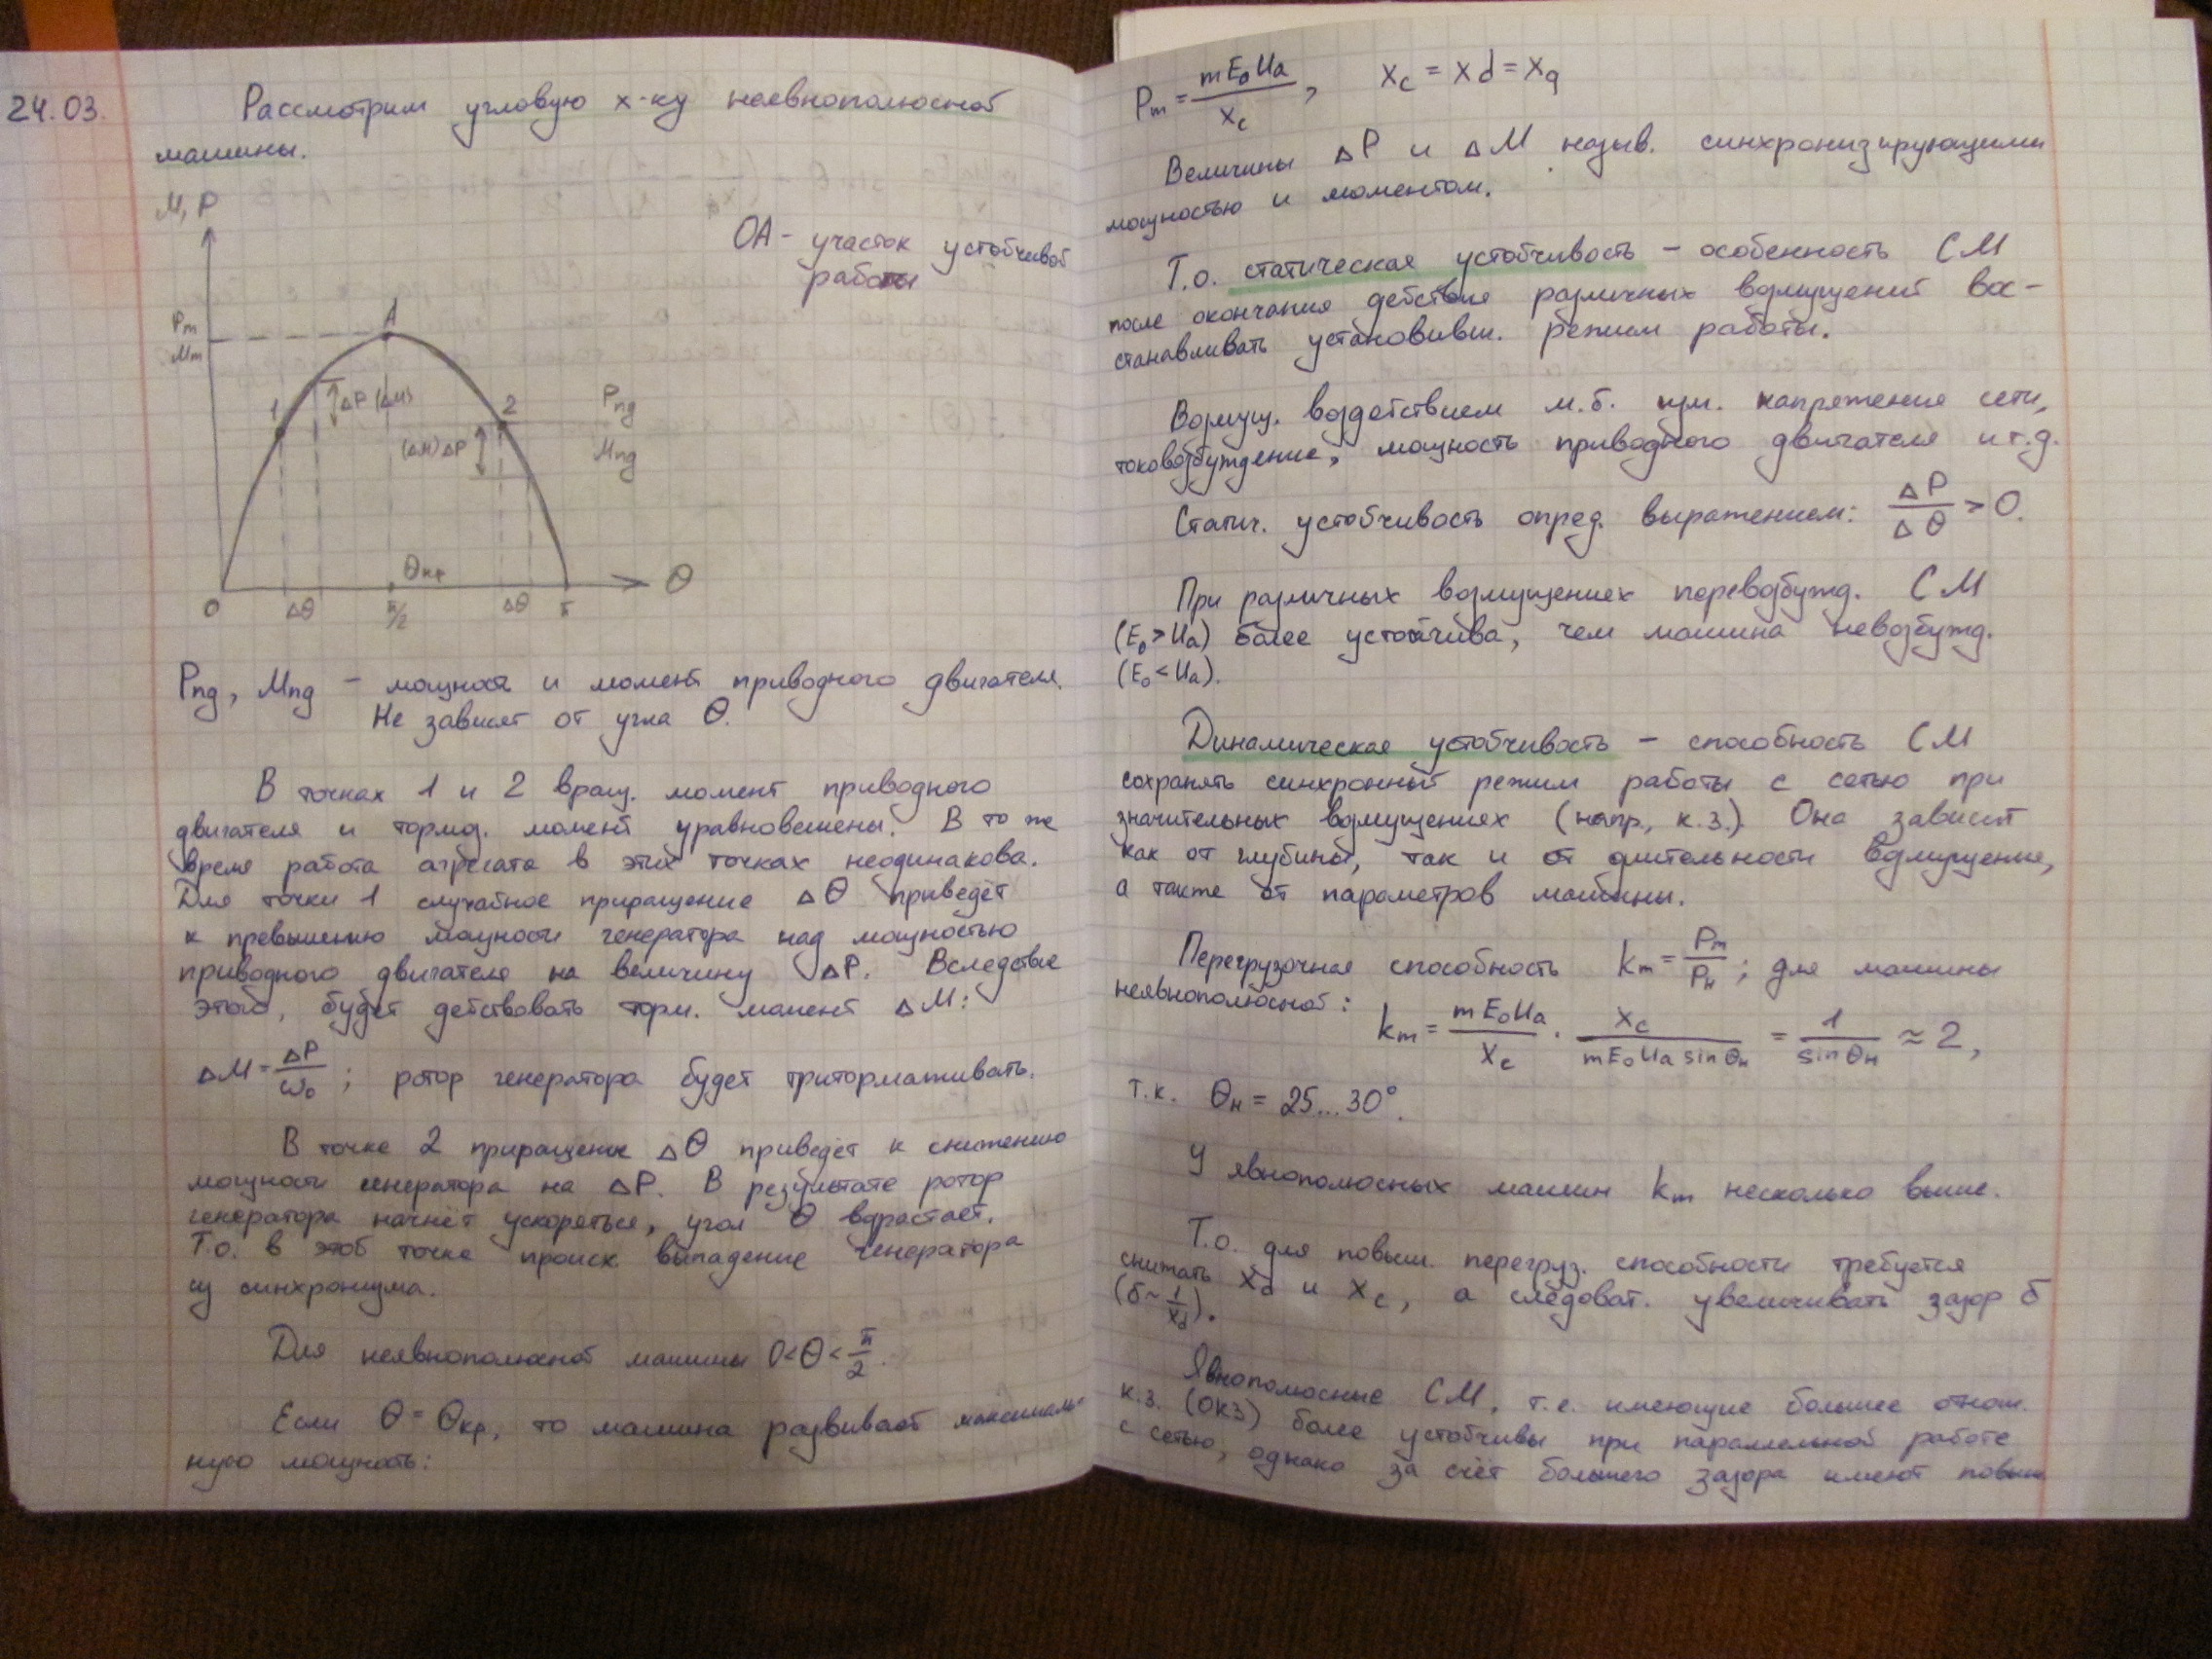 24.03.
Рассмотрим угловую х-ку неявнополюсной
машины.
М, Р
ОА - участок устойчивой
работы
А
Pm
Mm
1
ΔP (ΔM)
2
Pпд
Mпд
(ΔM) ΔP
Θкр
Θ
0
ΔΘ
π/2
ΔΘ
π
Pпд, Mпд - мощность и момент приводного двигателя.
Не зависят от угла Θ.
В точках 1 и 2 вращ. момент приводного
двигателя и тормоз. момент уравновешены. В то же
время работа агрегата в этих точках неодинакова.
Для точки 1 случайное приращение ΔΘ приведёт
к превышению мощности генератора над мощностью
приводного двигателя на величину ΔP. Вследствие
этого, будет действовать торм. момент ΔM:
ΔM = ΔP/ω₀ ; ротор генератора будет притормаживать.
В точке 2 приращение ΔΘ приведёт к снижению
мощности генератора на ΔP. В результате ротор
генератора начнёт ускоряться, угол Θ возрастает.
Т.о. в этой точке происх. выпадение генератора
из синхронизма.
Для неявнополюсной машины 0<Θ<π/2.
Если Θ = Θкр, то машина развивает максималь-
ную мощность:
Pm = mE₀Uа/xс , xс = xd = xq
Величины ΔP и ΔM назыв. синхронизирующими
мощностью и моментом.
Т.о. статическая устойчивость - особенность СМ
после окончания действия различных возмущений вос-
станавливать установивш. режим работы.
Возмущ. воздействием м.б. изм. напряжение сети,
токовозбуждение, мощность приводного двигателя и т.д.
Статич. устойчивость опред. выражением: ΔP/ΔΘ > 0.
При различных возмущениях перевозбужд. СМ
(E₀>Uа) более устойчива, чем машина невозбужд.
(E₀<Uа).
Динамическая устойчивость - способность СМ
сохранять синхронный режим работы с сетью при
значительных возмущениях (напр., к.з.). Она зависит
как от глубины, так и от длительности возмущение,
а также от параметров машины.
Перегрузочная способность km = Pm/Pн ; для машины
неявнополюсной:
km = mE₀Uа/xс · xс/mE₀Uа sinΘн = 1/sinΘн ≈ 2,
т.к. Θн = 25...30°.
У явнополюсных машин km несколько выше.
Т.о. для повыш. перегруз. способности требуется
снижать xd и xс, а следоват. увеличивать зазор δ
(δ~1/xd).
Явнополюсные СМ, т.е. имеющие большее отнош.
к.з. (ОКЗ) более устойчивы при параллельной работе
с сетью, однако за счёт большего зазора имеют повыш